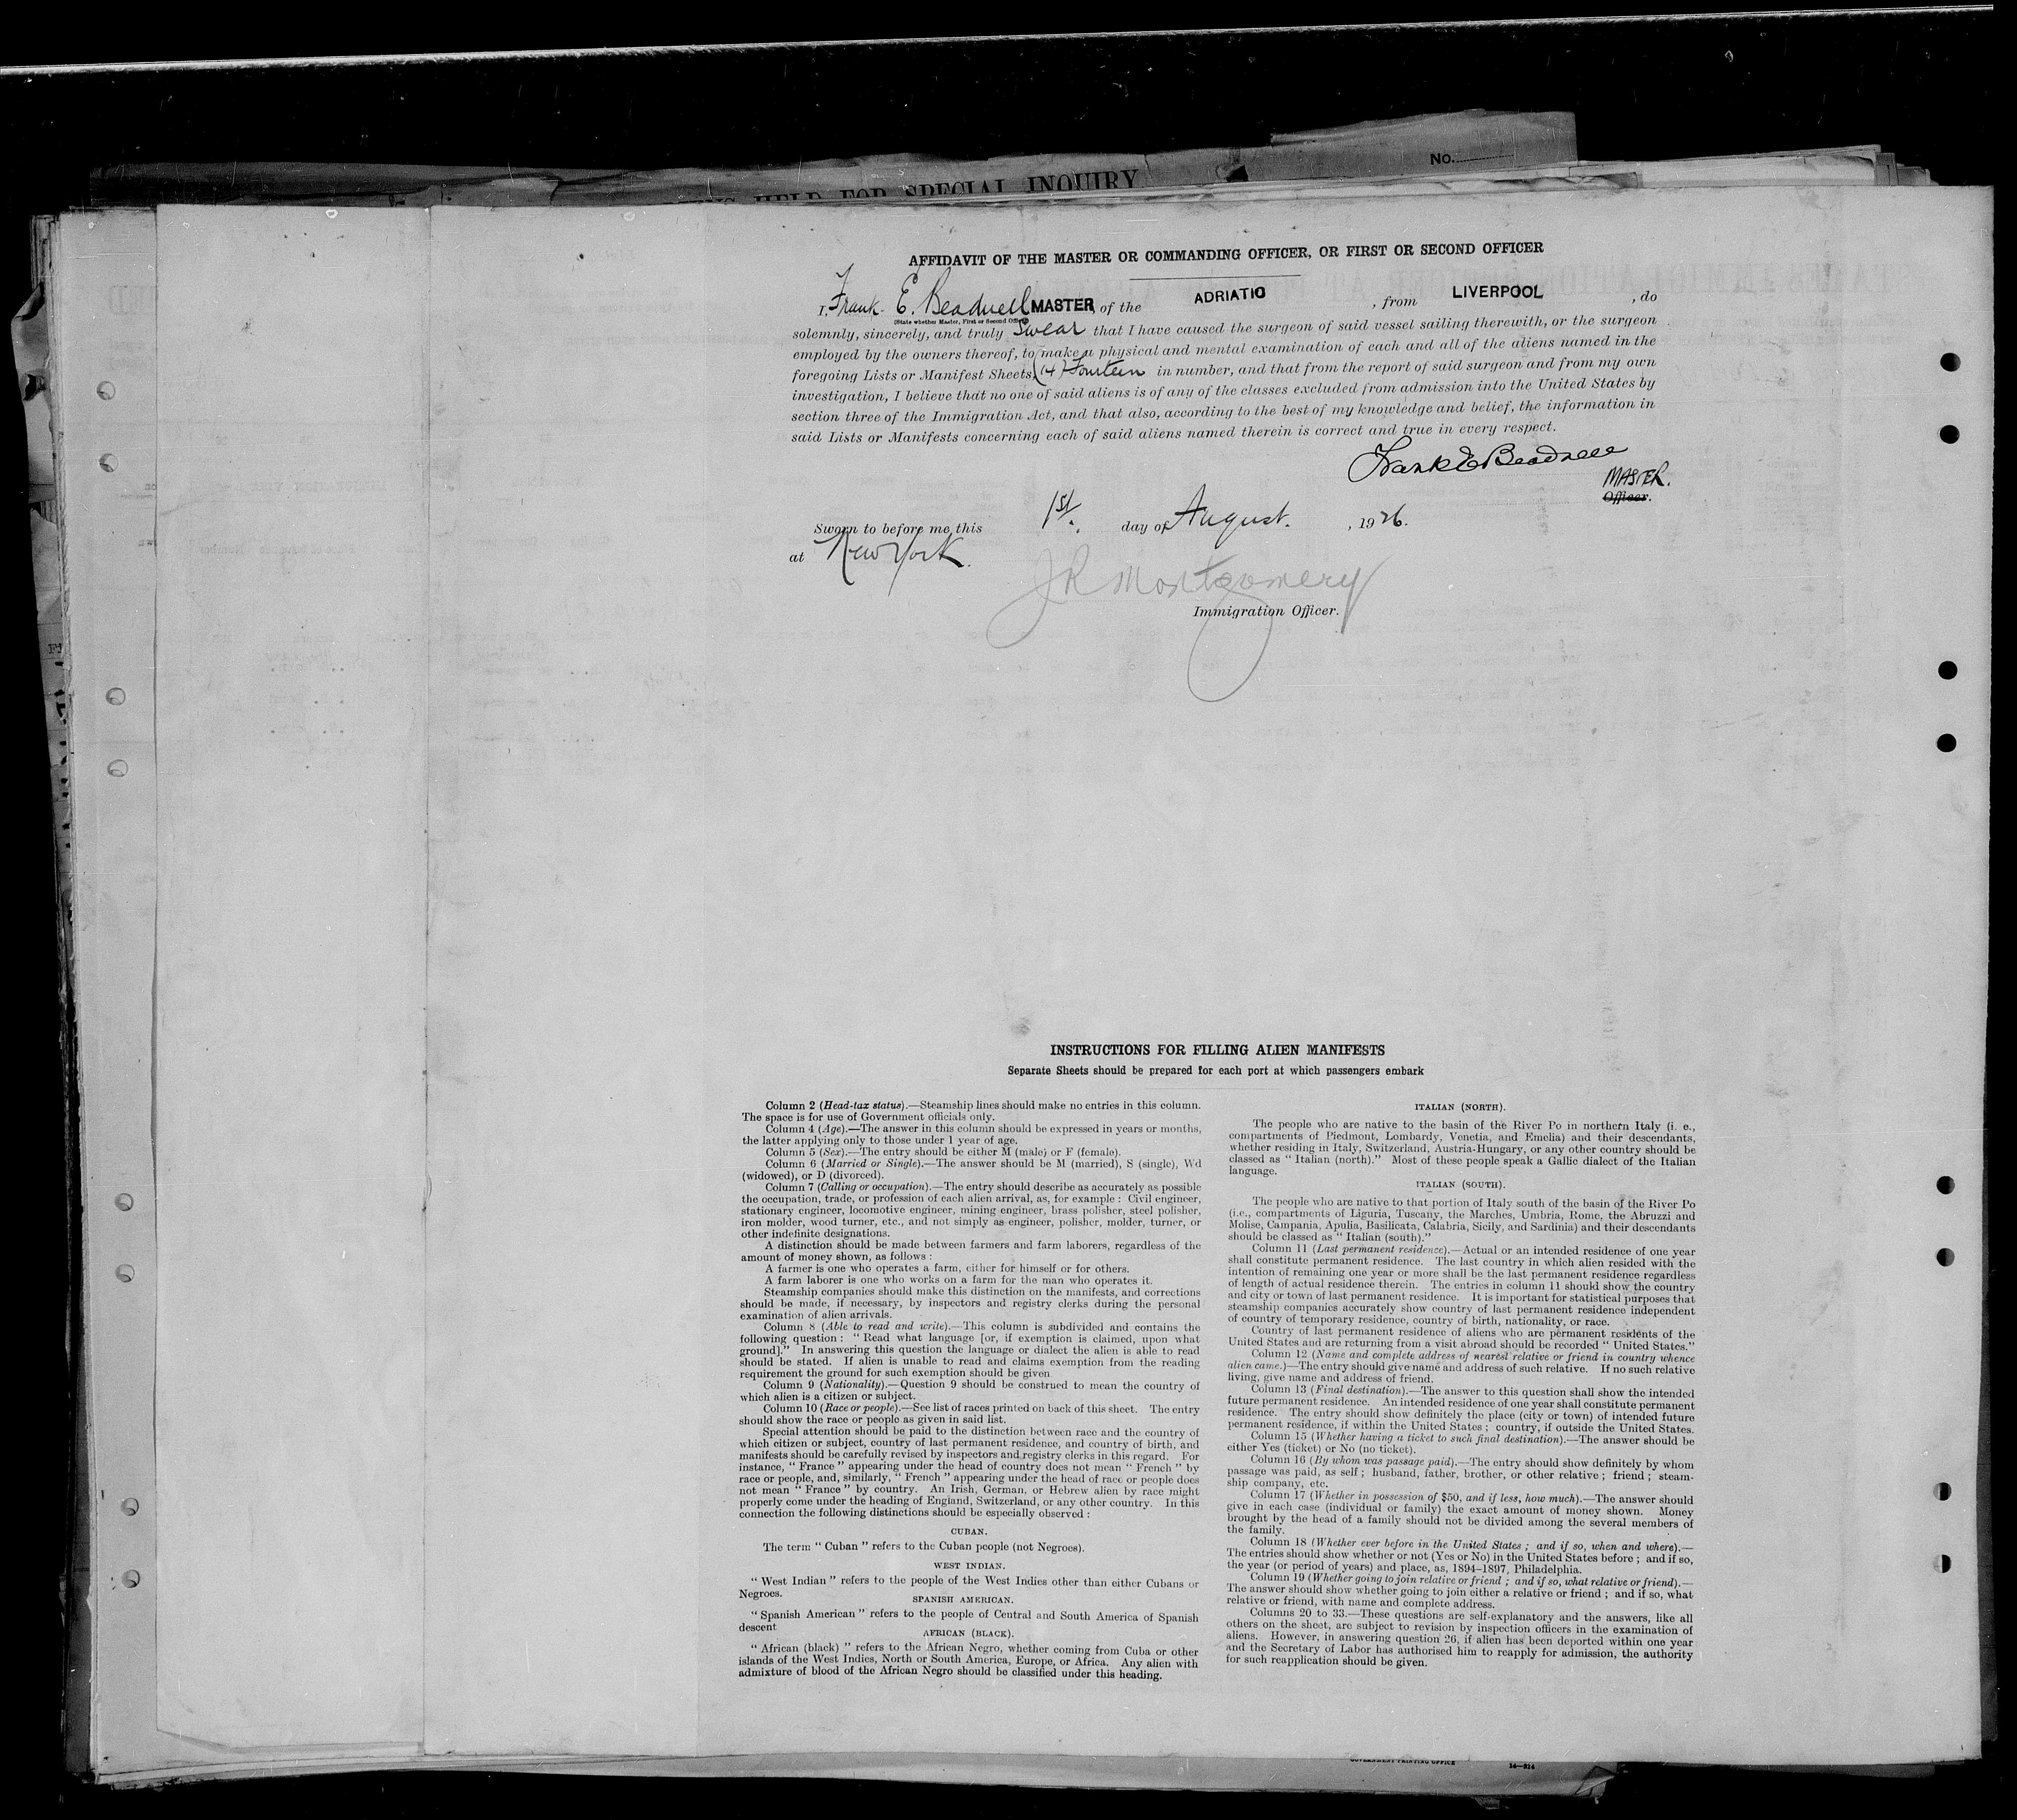 No.
HELD FOR SPECIAL INQUIRY
AFFIDAVIT OF THE MASTER OR COMMANDING OFFICER, OR FIRST OR SECOND OFFICER
I, Frank E. Beadnell MASTER, of the ADRIATIC, from LIVERPOOL, do
(State whether Master, First or Second Officer)
solemnly, sincerely, and truly swear that I have caused the surgeon of said vessel sailing therewith, or the surgeon
employed by the owners thereof, to make a physical and mental examination of each and all of the aliens named in the
foregoing Lists or Manifest Sheets, (14) Fourteen in number, and that from the report of said surgeon and from my own
investigation, I believe that no one of said aliens is of any of the classes excluded from admission into the United States by
section three of the Immigration Act, and that also, according to the best of my knowledge and belief, the information in
said Lists or Manifests concerning each of said aliens named therein is correct and true in every respect.
Frank E Beadnell
MASTER.
Officer.
Sworn to before me this 1st. day of August. , 1926.
at New York.
J R Montgomery
Immigration Officer.
INSTRUCTIONS FOR FILLING ALIEN MANIFESTS
Separate Sheets should be prepared for each port at which passengers embark
Column 2 (Head-tax status).—Steamship lines should make no entries in this column.
The space is for use of Government officials only.
Column 4 (Age).—The answer in this column should be expressed in years or months,
the latter applying only to those under 1 year of age.
Column 5 (Sex).—The entry should be either M (male) or F (female).
Column 6 (Married or Single).—The answer should be M (married), S (single), Wd
(widowed), or D (divorced).
Column 7 (Calling or occupation).—The entry should describe as accurately as possible
the occupation, trade, or profession of each alien arrival, as, for example : Civil engineer,
stationary engineer, locomotive engineer, mining engineer, brass polisher, steel polisher,
iron molder, wood turner, etc., and not simply as engineer, polisher, molder, turner, or
other indefinite designations.
A distinction should be made between farmers and farm laborers, regardless of the
amount of money shown, as follows :
A farmer is one who operates a farm, either for himself or for others.
A farm laborer is one who works on a farm for the man who operates it.
Steamship companies should make this distinction on the manifests, and corrections
should be made, if necessary, by inspectors and registry clerks during the personal
examination of alien arrivals.
Column 8 (Able to read and write).—This column is subdivided and contains the
following question : " Read what language [or, if exemption is claimed, upon what
ground]." In answering this question the language or dialect the alien is able to read
should be stated. If alien is unable to read and claims exemption from the reading
requirement the ground for such exemption should be given.
Column 9 (Nationality).—Question 9 should be construed to mean the country of
which alien is a citizen or subject.
Column 10 (Race or people).—See list of races printed on back of this sheet. The entry
should show the race or people as given in said list.
Special attention should be paid to the distinction between race and the country of
which citizen or subject, country of last permanent residence, and country of birth, and
manifests should be carefully revised by inspectors and registry clerks in this regard. For
instance, " France " appearing under the head of country does not mean " French " by
race or people, and, similarly, " French " appearing under the head of race or people does
not mean " France " by country. An Irish, German, or Hebrew alien by race might
properly come under the heading of England, Switzerland, or any other country. In this
connection the following distinctions should be especially observed :
CUBAN.
The term " Cuban " refers to the Cuban people (not Negroes).
WEST INDIAN.
" West Indian " refers to the people of the West Indies other than either Cubans or
Negroes.
SPANISH AMERICAN.
" Spanish American " refers to the people of Central and South America of Spanish
descent
AFRICAN (BLACK).
" African (black) " refers to the African Negro, whether coming from Cuba or other
islands of the West Indies, North or South America, Europe, or Africa. Any alien with
admixture of blood of the African Negro should be classified under this heading.
ITALIAN (NORTH).
The people who are native to the basin of the River Po in northern Italy (i. e.,
compartments of Piedmont, Lombardy, Venetia, and Emelia) and their descendants,
whether residing in Italy, Switzerland, Austria-Hungary, or any other country should be
classed as " Italian (north)." Most of these people speak a Gallic dialect of the Italian
language.
ITALIAN (SOUTH).
The people who are native to that portion of Italy south of the basin of the River Po
(i.e., compartments of Liguria, Tuscany, the Marches, Umbria, Rome, the Abruzzi and
Molise, Campania, Apulia, Basilicata, Calabria, Sicily, and Sardinia) and their descendants
should be classed as " Italian (south)."
Column 11 (Last permanent residence).—Actual or an intended residence of one year
shall constitute permanent residence. The last country in which alien resided with the
intention of remaining one year or more shall be the last permanent residence regardless
of length of actual residence therein. The entries in column 11 should show the country
and city or town of last permanent residence. It is important for statistical purposes that
steamship companies accurately show country of last permanent residence independent
of country of temporary residence, country of birth, nationality, or race.
Country of last permanent residence of aliens who are permanent residents of the
United States and are returning from a visit abroad should be recorded " United States."
Column 12 (Name and complete address of nearest relative or friend in country whence
alien came.)—The entry should give name and address of such relative. If no such relative
living, give name and address of friend.
Column 13 (Final destination).—The answer to this question shall show the intended
future permanent residence. An intended residence of one year shall constitute permanent
residence. The entry should show definitely the place (city or town) of intended future
permanent residence, if within the United States ; country, if outside the United States.
Column 15 (Whether having a ticket to such final destination).—The answer should be
either Yes (ticket) or No (no ticket).
Column 16 (By whom was passage paid).—The entry should show definitely by whom
passage was paid, as self ; husband, father, brother, or other relative ; friend ; steam-
ship company, etc.
Column 17 (Whether in possession of $50, and if less, how much).—The answer should
give in each case (individual or family) the exact amount of money shown. Money
brought by the head of a family should not be divided among the several members of
the family.
Column 18 (Whether ever before in the United States ; and if so, when and where).—
The entries should show whether or not (Yes or No) in the United States before ; and if so,
the year (or period of years) and place, as, 1894–1897, Philadelphia.
Column 19 (Whether going to join relative or friend ; and if so, what relative or friend).—
The answer should show whether going to join either a relative or friend ; and if so, what
relative or friend, with name and complete address.
Columns 20 to 33.—These questions are self-explanatory and the answers, like all
others on the sheet, are subject to revision by inspection officers in the examination of
aliens. However, in answering question 26, if alien has been deported within one year
and the Secretary of Labor has authorised him to reapply for admission, the authority
for such reapplication should be given.
GOVERNMENT PRINTING OFFICE 14—214